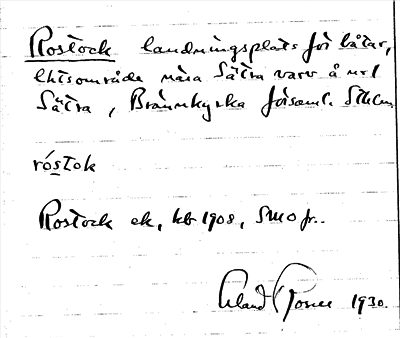 Rostock landningsplats för båtar,
lhtsområde nära Sätra varv å
Sätra, Brännkyrka församl. Sthlm
róstok
Rostock ek, kb 1908, SMO fr..
Erland 1930.